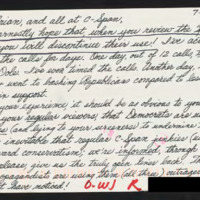 Brian, and all at C-Span,
earnestly hope that when you review the
you will discontinue their use! I've
the calls for days. One day, out of 12 calls,
Dole. I've now timed the calls. Another day,
went to bashing Republicans compared to
in support.
your experience, it should be as obvious to you
your regular viewers, that Democrats are
(and lying to your screeners) to undermine
inevitable that regular C-Span junkies (as
ward conservatism, we're informed, through
please, give us the truly open lines back! The
propagandists are using them (all three) outrageously
t have noticed!